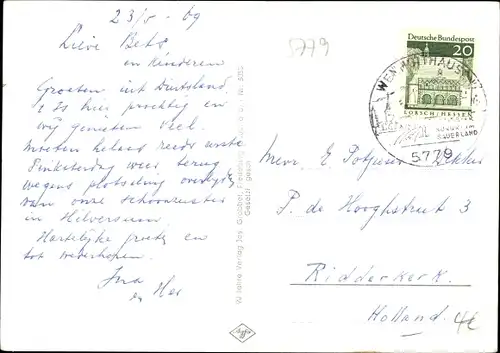 23/5 - 69
Lieve Bets
en Kinderen
Groeten uit Duitsland.
't Is hier prachtig en
wij genieten veel.
Moeten helaas reeds eerste
Pinksterdag weer terug
wegens plotseling overlijden
van onze schoonzuster
in Hilversum.
Hartelijke groeten en
tot wederhoren.
Ina
en
5779
Deutsche Bundespost
20
LORSCH/HESSEN
SAUERLAND
5779
Mevr. E Potjewijd
P. de Hooghstreet 3
Ridderkerk.
Holland.
4e
Agfa